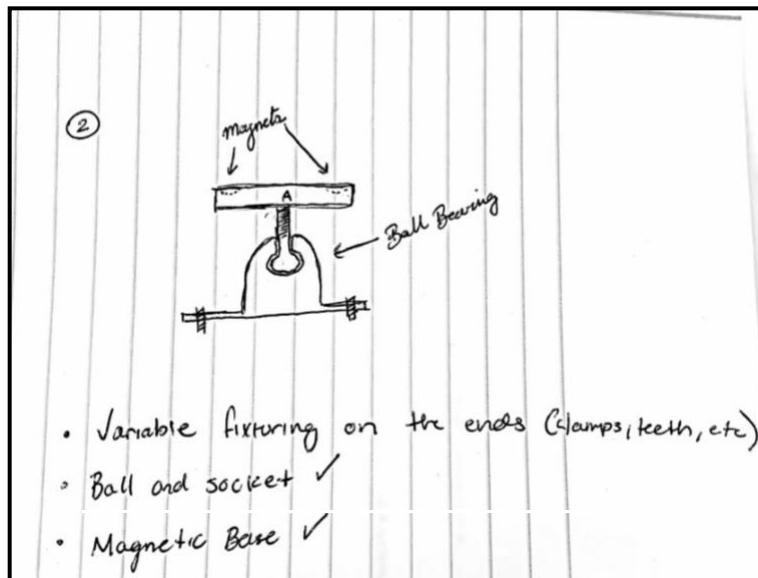 ②
Magnets
A
Ball Bearing
• Variable fixturing on the ends (clamps, teeth, etc)
• Ball and socket ✓
• Magnetic Base ✓